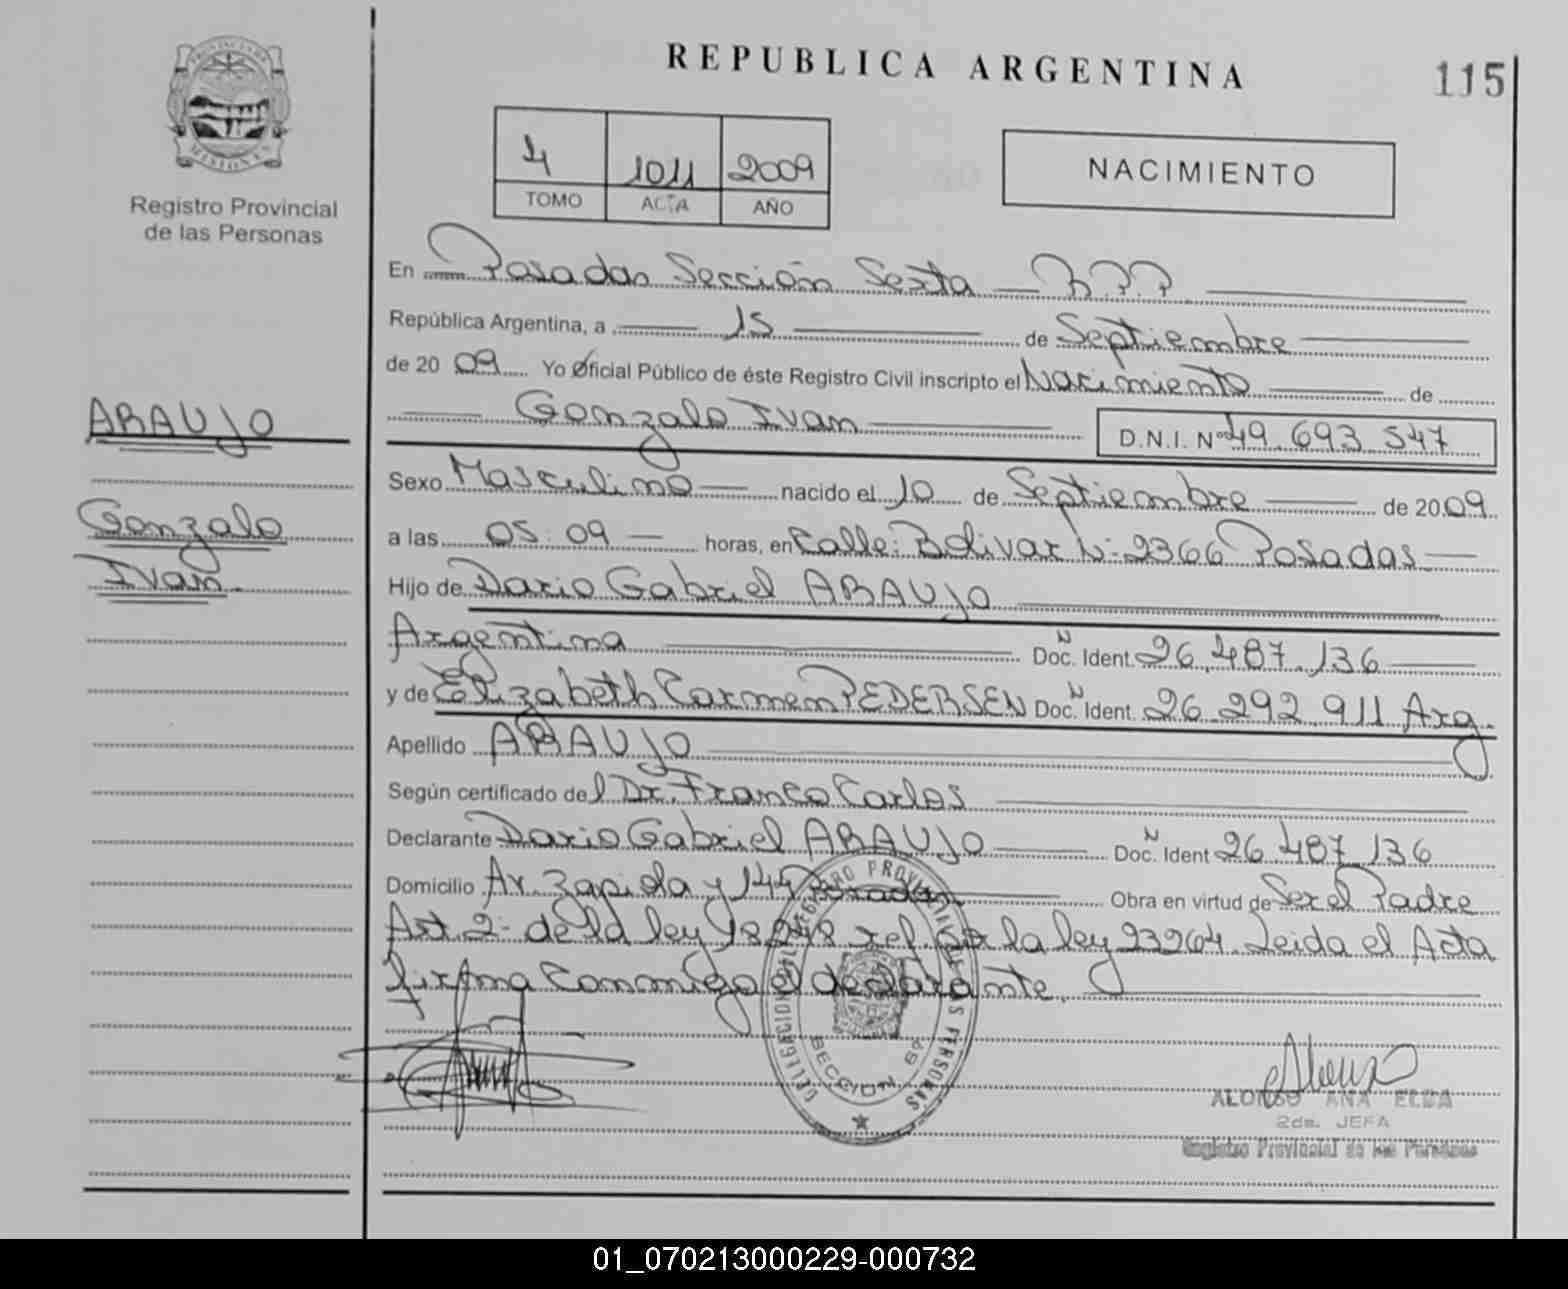 REPUBLICA ARGENTINA
115
PROVINCIA DE
MISIONES
Registro Provincial
de las Personas
4 1011 2009
TOMO ACTA AÑO
NACIMIENTO
En Posadas Sección Sexta
República Argentina, a 15 de Septiembre
de 20 09 Yo Oficial Público de éste Registro Civil inscripto el Nacimiento de
Gonzalo Ivan D.N.I. Nº 49.693.547
ARAUJO
Gonzalo
Ivan
Sexo Masculino nacido el 10 de Septiembre de 20 09
a las 05:09 horas, en Calle: Bolivar Nº 2366 Posadas
Hijo de Dario Gabriel ARAUJO
Argentina Doc. Ident. 26.487.136
y de Elizabeth Carmen PEDERSEN Doc. Ident. 26.292.911 Arg.
Apellido ARAUJO
Según certificado del Dr. Franco Carlos
Declarante Dario Gabriel ARAUJO Doc. Ident 26.487.136
Domicilio Av. Zapiola y 144 Posadas Obra en virtud de Ser el Padre
Art. 2º de la ley 18248 ref. por la ley 23264. Leida el Acta
firma conmigo el declarante.
DELEGACION DEL REGISTRO PROVINCIAL DE LAS PERSONAS
SECCION 6ª
ALONSO ANA ELBA
2da. JEFA
Registro Provincial de las Personas
01_070213000229-000732